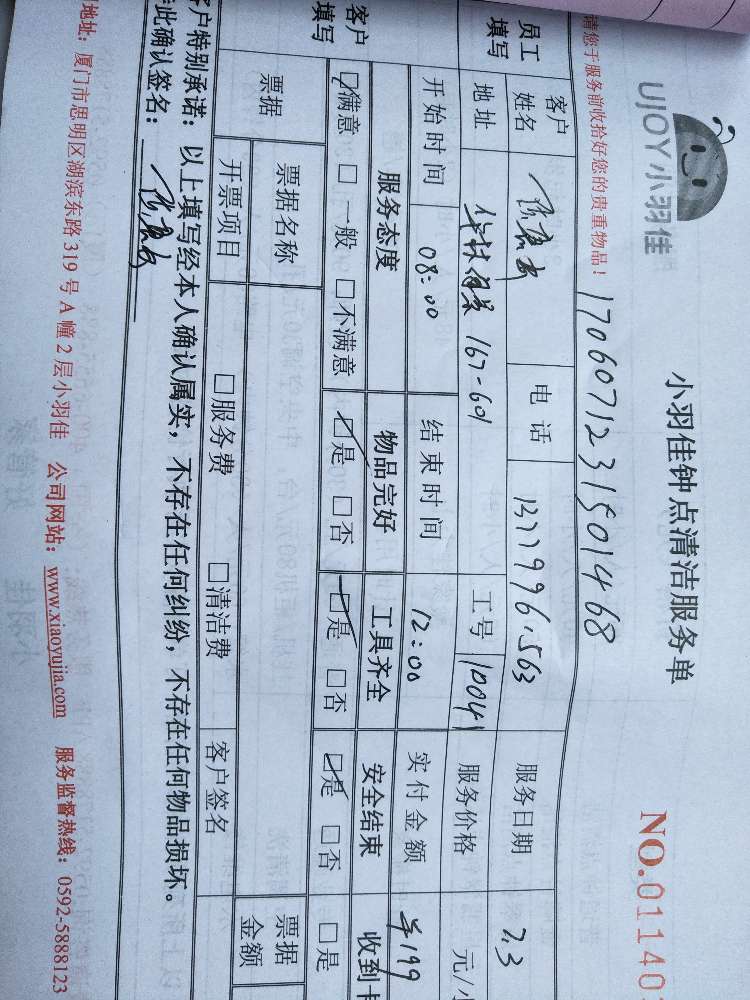 UJOY小羽佳
小羽佳钟点清洁服务单
NO.01140
请您于服务前收拾好您的贵重物品！
1706071231501468
员工填写
客户姓名
电话
服务日期 2.3
地址 167-601
工号 10041
服务价格 元/小
开始时间 08:00
结束时间 12:00
实付金额 ¥199
客户填写
服务态度 物品完好 工具齐全 安全结束 收到卡
☑满意 □一般 □不满意 ☑是 □否 ☑是 □否 ☑是 □否 □是
票据
票据名称
票据金额
开票项目 □服务费 □清洁费
客户签名
客户特别承诺：以上填写经本人确认属实，不存在任何纠纷，不存在任何物品损坏。
此确认签名：
地址：厦门市思明区湖滨东路319号A幢2层小羽佳 公司网站：www.xiaoyujia.com 服务监督热线：0592-5888123